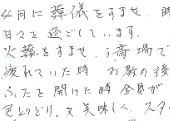 4月に葬儀をすませ、時
日々と過ごしています。
火葬をすませ、斎場で
疲れていた時 お数の後
ふたを開けた時 全員が
色とりどり、又美味しく、スタ